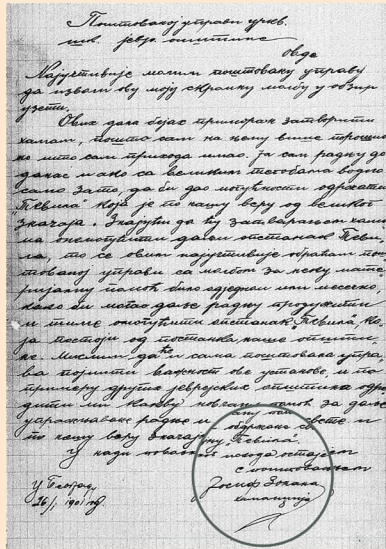 Поштованој управи цркв.
шк. јевр. општине
Овде
Најучтивије молим поштовану управу
да изволи ову моју скромну молбу у обзир
узети.
Ових дана бејах приморан затворити
хамам, пошто сам на њему више трошио
но што сам прихода имао. Ја сам радњу до
данас и ако са великим теготама водио
само зато, да би дао могућности одржати
"Тевила" која је по нашу веру од великог
значаја. Знајући да ћу затварањем хама-
ма онемогућити даљи опстанак Теви-
ла, то се овим најучтивије обраћам пош-
тованој управи са молбом за неку мате-
ријалну помоћ било одједном или месечно
како би могао даље радњу продужити
и тиме омогућити опстанак "Тевила", ко-
ја постоји од постанка наше општи-
не. Мислим да ће сама поштована упра-
ва појмити важност ове установе, и по
примеру других јеврејских општина одре-
дити ми какву новчану помоћ за даље
упражњавање радње и одржање
по нашу веру значајну "Тевила".
У нади повољног исхода остајем
с поштовањем
У Београду
26/I 1901 год.
Јосиф